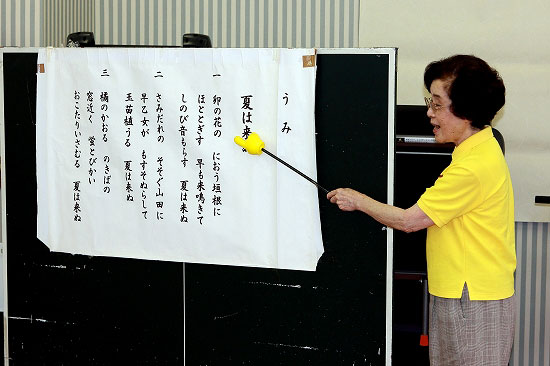 うみ
夏は来
一 卯の花の におう垣根に
ほととぎす 早も来鳴きて
しのび音もらす 夏は来ぬ
二 さみだれの そそぐ山田に
早乙女が もすそぬらして
玉苗植うる 夏は来ぬ
三 橘のかおる のきばの
窓近く 蛍とびかい
おこたりいさむる 夏は来ぬ